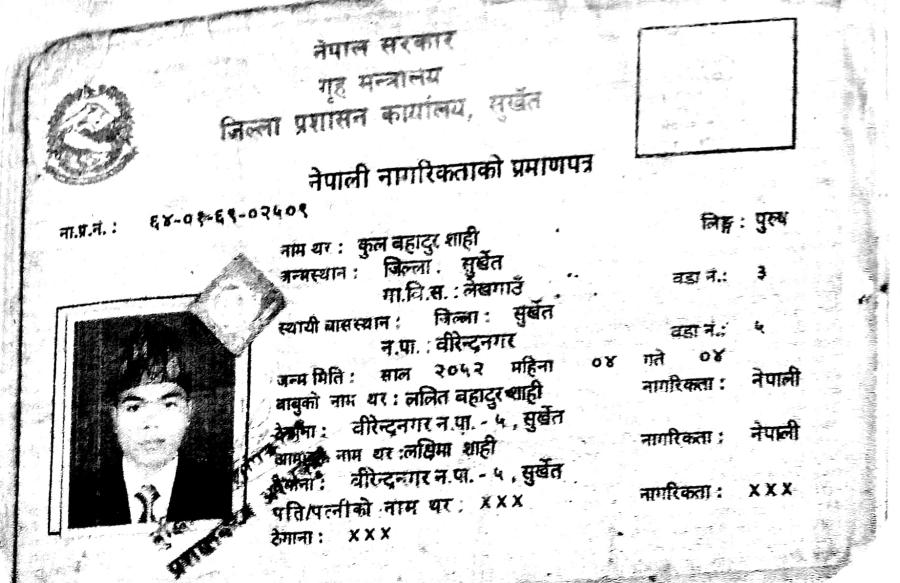 नेपाल सरकार
गृह मन्त्रालय
जिल्ला प्रशासन कार्यालय, सुर्खेत
नेपाली नागरिकताको प्रमाणपत्र
ना.प्र.नं. : ६४-०१-६९-०२५०९ लिङ्ग : पुरुष
नाम थर : कुल बहादुर शाही
जन्मस्थान : जिल्ला : सुर्खेत वडा नं.: ३
गा.वि.स. : लेखगाउँ
स्थायी बासस्थान : जिल्ला : सुर्खेत वडा नं.: ५
न.पा. : वीरेन्द्रनगर
जन्म मिति : साल २०५२ महिना ०४ गते ०४
बाबुको नाम थर : ललित बहादुर शाही नागरिकता : नेपाली
ठेगाना : वीरेन्द्रनगर न.पा. - ५ , सुर्खेत
आमाको नाम थर : लक्षिमा शाही नागरिकता : नेपाली
ठेगाना : वीरेन्द्रनगर न.पा. - ५ , सुर्खेत
पति/पत्नीको नाम थर : XXX नागरिकता : XXX
ठेगाना : XXX